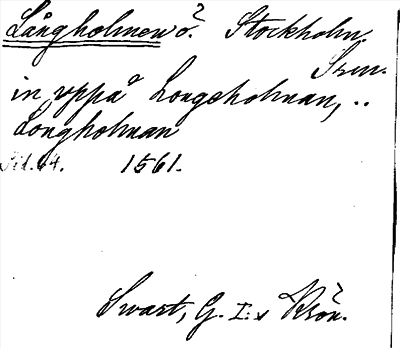 Långholmen ö. Stockholm.
Srm.
in vppå Longeholman, ..
Longholman
Sid. 64. 1561.
Swart, G. I:s Krön.